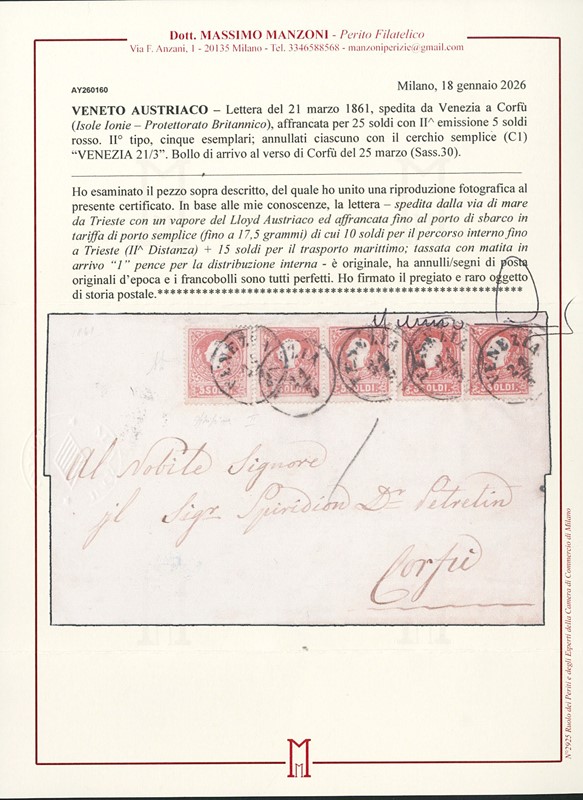 Dott. MASSIMO MANZONI - Perito Filatelico
Via F. Anzani, 1 - 20135 Milano - Tel. 3346588568 - manzoniperizie@gmail.com
AY260160
Milano, 18 gennaio 2026
VENETO AUSTRIACO – Lettera del 21 marzo 1861, spedita da Venezia a Corfù
(Isole Ionie – Protettorato Britannico), affrancata per 25 soldi con II^ emissione 5 soldi
rosso. II° tipo, cinque esemplari; annullati ciascuno con il cerchio semplice (C1)
“VENEZIA 21/3”. Bollo di arrivo al verso di Corfù del 25 marzo (Sass.30).
Ho esaminato il pezzo sopra descritto, del quale ho unito una riproduzione fotografica al
presente certificato. In base alle mie conoscenze, la lettera – spedita dalla via di mare
da Trieste con un vapore del Lloyd Austriaco ed affrancata fino al porto di sbarco in
tariffa di porto semplice (fino a 17,5 grammi) di cui 10 soldi per il percorso interno fino
a Trieste (II^ Distanza) + 15 soldi per il trasporto marittimo; tassata con matita in
arrivo “1” pence per la distribuzione interna - è originale, ha annulli/segni di posta
originali d’epoca e i francobolli sono tutti perfetti. Ho firmato il pregiato e raro oggetto
di storia postale.*****************************************************
VENEZIA VENEZIA VENEZIA VENEZIA
5 SOLDI 5 SOLDI 5 SOLDI 5 SOLDI 5 SOLDI
1
Al Nobile Signore
jl Sigr Spiridion Dr Petretin
Corfù
N°2925 Ruolo dei Periti e degli Esperti della Camera di Commercio di Milano
M